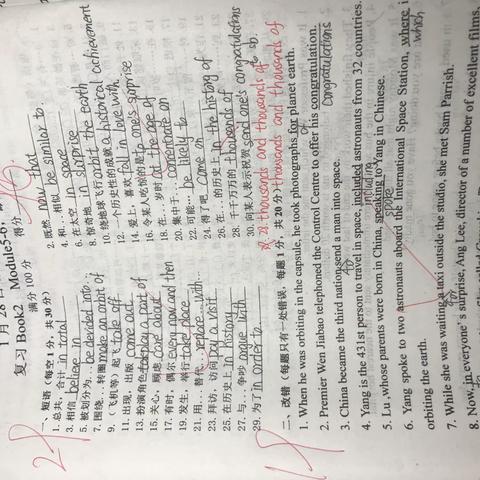 1月26日
复习 Book2 Module5-6,
满分 100 分 得分 46.
一、短语 (每空 1 分, 共 30 分)
1. 总共, 合计 in total 2. 既然 now that
3. 相信 believe in 4. 和…相似 be similar to
5. 被划分为… be devided into 6. 在太空 in space
7. 围绕, 转圈 make an orbit of 8. 惊奇地 in surprise
9. (飞机等) 起飞 take off 10. 绕地球飞行 orbit the earth
11. 出现, 出版 come out 12. 一个历史性的成就 a historical achievement
13. 扮演角色 play a part of 14. 爱上, 喜欢 fall in love with
15. 关心, 顾虑 care about 16. 令某人吃惊的是 to one's surprise
17. 有时, 偶尔 even now and then 18. 在…岁时 at the age of
19. 发生, 举行 take place 20. 集中于… concentrate on
21. 用…替代 replace...with... 22. 可能… be likely to
23. 拜访, 访问 pay a visit 24. 得了吧 come on
25. 在历史上 in history 26. 在…的历史上 in the history of
27. 与…争吵 argue with 28. 千千万万的 thousands of
29. 为了 in order to 30. 向某人表示祝贺 send one's congratulations to sb.
28. thousands and thousands of
thousands and thousands of
二、改错 (每题只有一处错误, 每题 1 分, 共 20 分)
1. When he was orbiting in the capsule, he took photographs for planet earth.
of
2. Premier Wen Jiabao telephoned the Control Centre to offer his congratulation.
congratulations
3. China became the third nation send a man into space.
to
4. Yang is the 431st person to travel in space, included astronauts from 32 countries.
including
5. Lu ,whose parents were born in China, speaking to Yang in Chinese.
spoke
6. Yang spoke to two astronauts aboard the International Space Station, where i
which
orbiting the earth.
7. While she was waiting a taxi outside the studio, she met Sam Parrish.
for
8. Now, in everyone's surprise, Ang Lee, director of a number of excellent films,